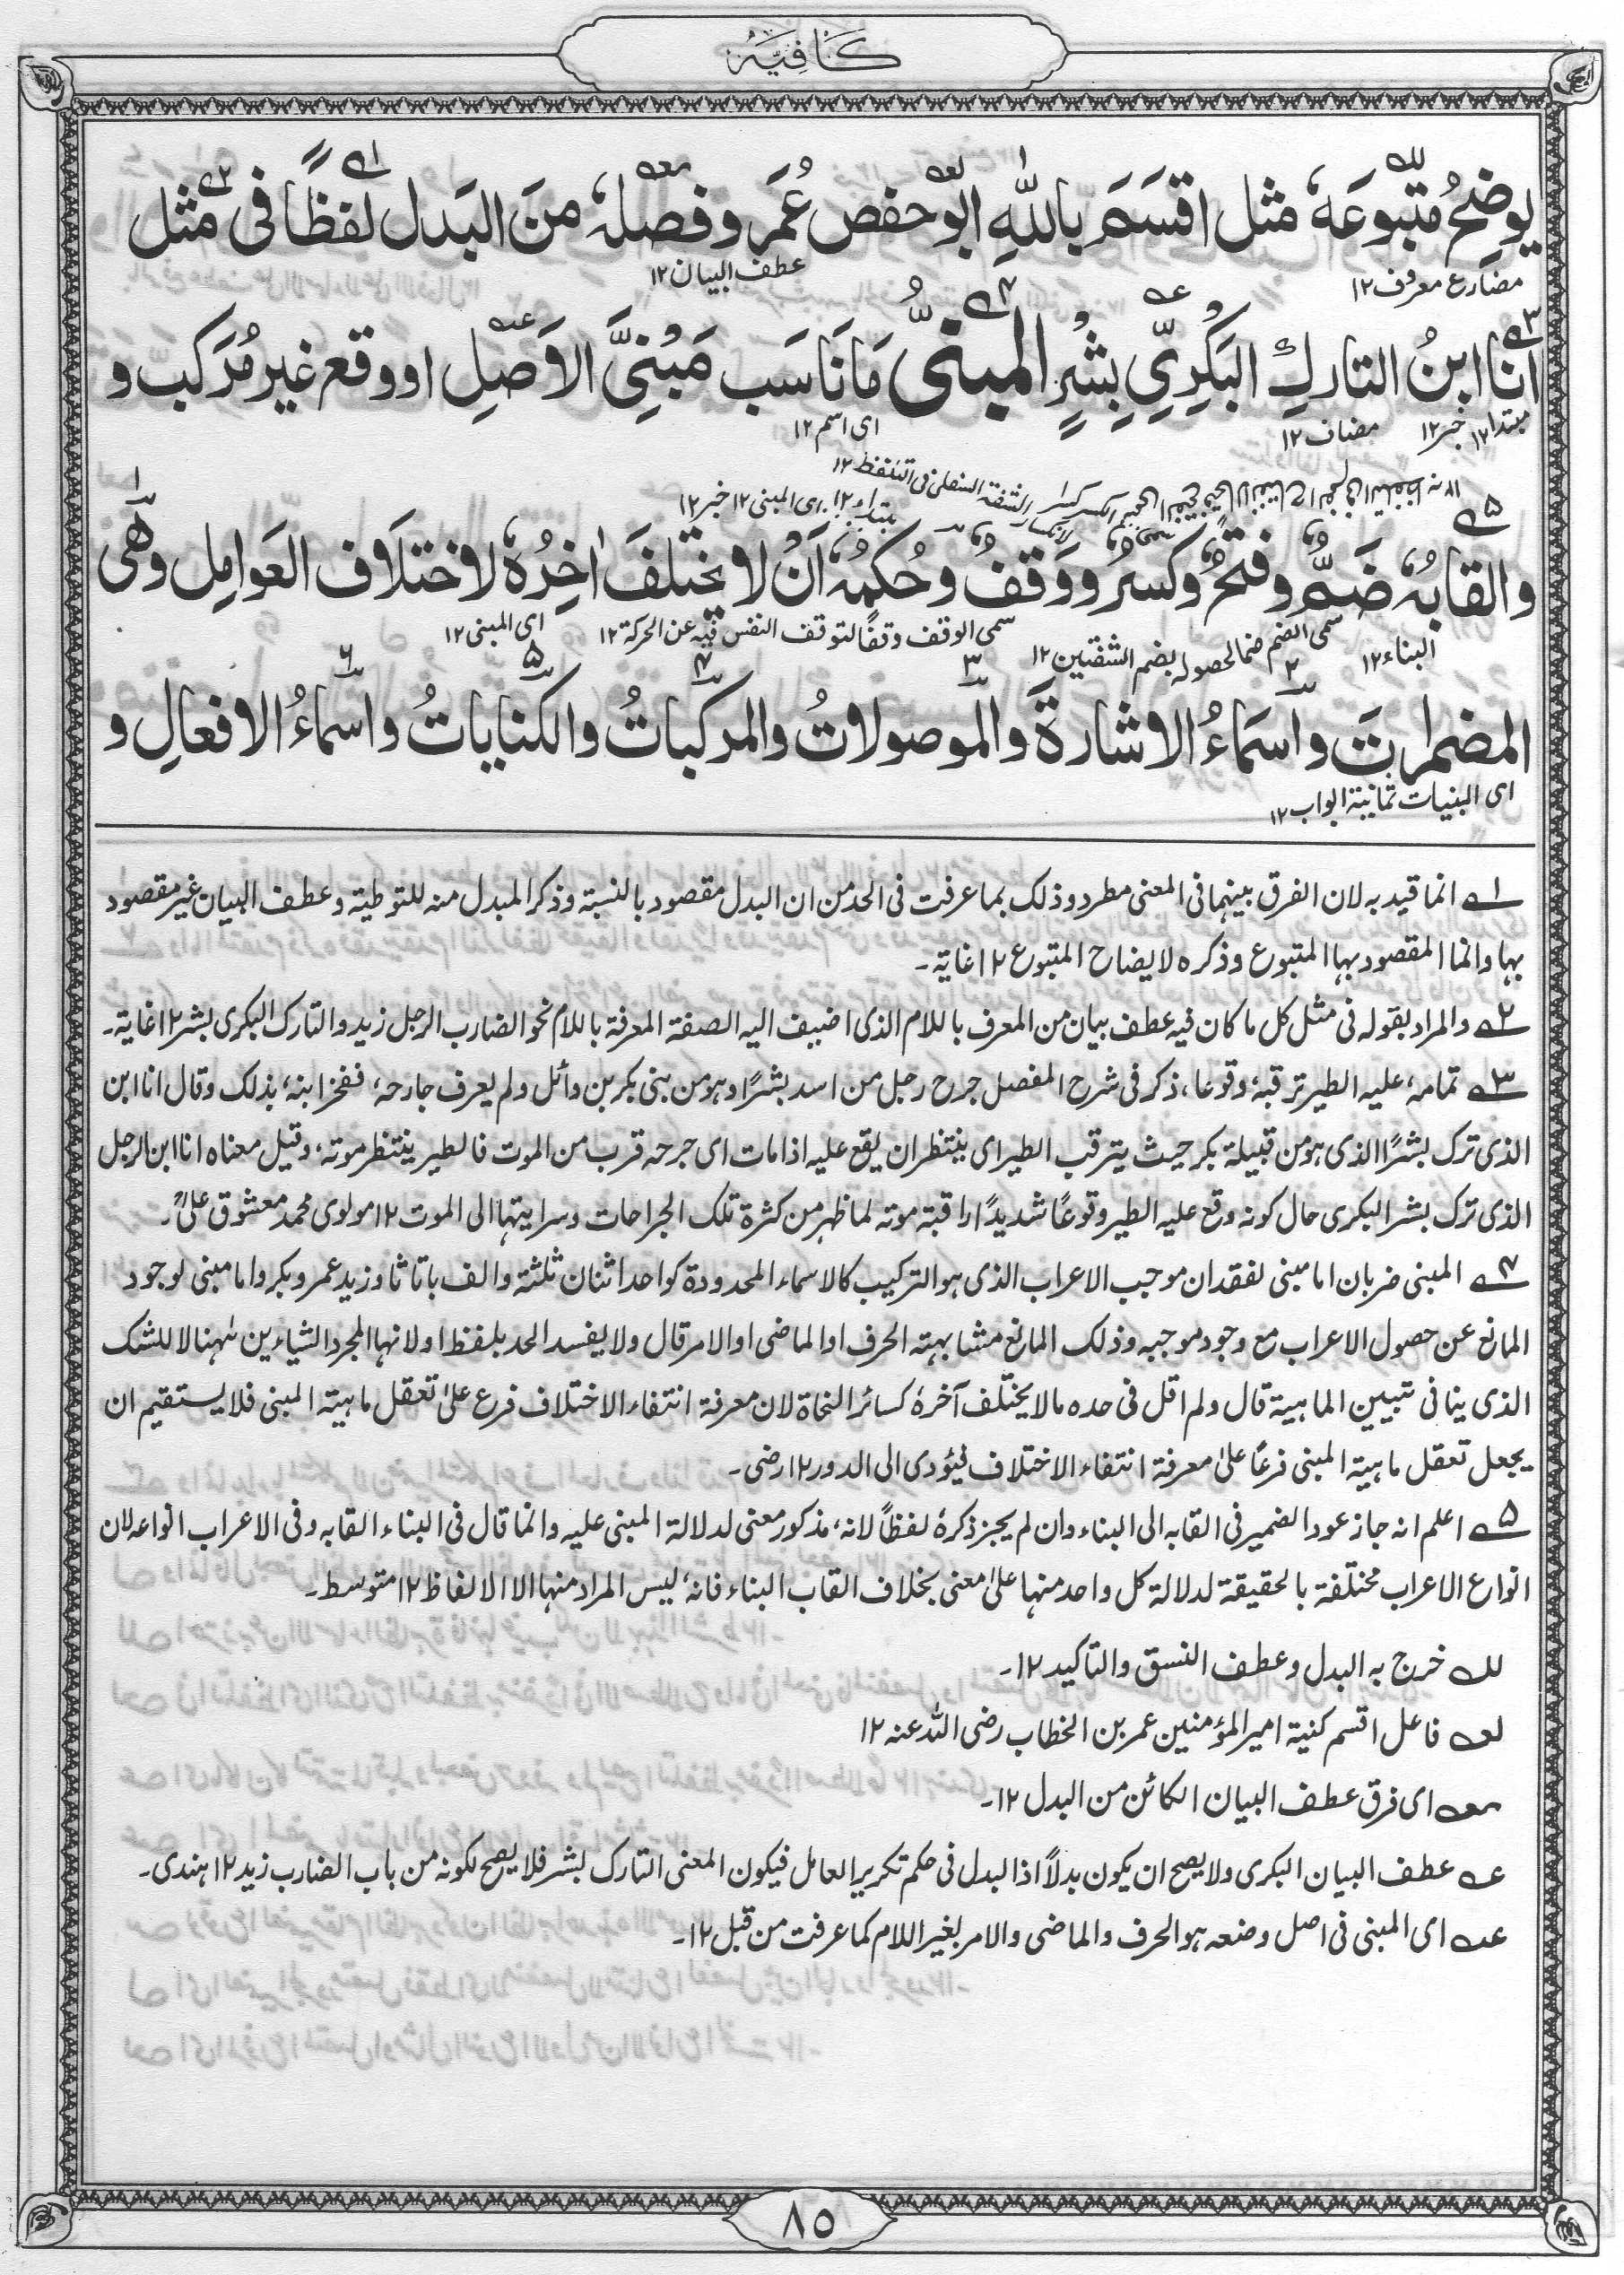 كَافِيَه
يوضِحُ مَتبوعَهٗ مثل اقسَمَ باللّٰهِ ابو حفص عُمَر و فصلهٗ منَ البَدل لفظًا فى مثل
مضارع معروف ۱۲ عطف البيان ۱۲
انا ابنُ التاركِ البَكرِىِّ بِشْرٍ المبنىُّ مَا نَاسَب مَبْنِىَّ الاَصلِ او وقع غير مُركب و
مبتدا ۱۲ خبر ۱۲ مضاف ۱۲ اى اسم ۱۲
مبتدا ۱۲ اى المبنى ۱۲ خبر ۱۲
والقابهٗ ضَمٌّ وفتحٌ وكسرٌ ووقفٌ وحُكمهٗ اَنْ لا يختلفَ اٰخِرُهٗ لاختلَاف العَوامِل وهى
البناء ۱۲ سمى الضم ضما لحصوله بضم الشفتين ۱۲ سمى الوقف وقفًا لتوقف النفس فيه عن الحركة ۱۲ اى المبنى ۱۲
المضمراتَ واسمَاءُ الاشارةَ والموصولاتُ والمركباتُ والكناياتُ واسماءُ الافعالِ و
اى البنيات ثمانية ابواب ۱۲
۱ انما قيد به لان الفرق بينهما فى المعنى مطرد وذلك بما عرفت فى الحد من ان البدل مقصود بالنسبة وذكر المبدل منه للتوطية وعطف البيان غير مقصود
بها وانما المقصود بها المتبوع وذكره لايضاح المتبوع ۱۲ غاية۔
۲ والمراد بقوله فى مثل كل ما كان فيه عطف بيان من المعرف باللام الذى اضيف اليه الصفة المعرفة باللام نحو الضارب الرجل زيد والتارك البكرى بشر ۱۲ غاية۔
۳ تمامهٗ عليه الطير ترقبهٗ وقوعا، ذكر فى شرح المفصل جرح رجل من اسد بشرًا وهو من بنى بكر بن وائل ولم يعرف جارحهٗ، ففخر ابنهٗ بذلك وقال انا ابن
الذى ترك بشرًا الذى هو من قبيلة بكر حيث يترقب الطير اى ينتظر ان يقع عليه اذا مات اى جرحه قرب من الموت فالطير ينتظر موتهٗ، وقيل معناه انا ابن الرجل
الذى ترك بشر البكرى حال كونه وقع عليه الطير وقوعًا شديدًا راقبة موته لما ظهر من كثرة تلك الجراحات وسرايتها الى الموت ۱۲ مولوى محمد معشوق علىؒ۔
۴ المبنى ضربان اما مبنى لفقدان موجب الاعراب الذى هو التركيب كالاسماء المحدودة كواحد اثنان ثلثة والف با تا ثا وزيد عمرو بكر واما مبنى لوجود
المانع عن حصول الاعراب مع وجود موجبه وذلك المانع مشابهته الحرف او الماضى او الامر قال ولا يفسد الحد بلفظ او لانها لمجرد الشياءين ههنا لا للشك
الذى ينافى تبيين الماهية قال ولم اقل فى حده ما لا يختلف آخرهٗ كسائر النحاة لان معرفة انتفاء الاختلاف فرع علىٰ تعقل ماهية المبنى فلا يستقيم ان
يجعل تعقل ماهية المبنى فرعًا علىٰ معرفة انتفاء الاختلاف فيؤدى الى الدور ۱۲ رضى۔
۵ اعلم انه جاز عود الضمير فى القابه الى البناء وان لم يجز ذكرهٗ لفظًا لانهٗ مذكور معنى لدلالة المبنى عليه وانما قال فى البناء القابه وفى الاعراب انواعه لان
انواع الاعراب مختلفة بالحقيقة لدلالة كل واحد منها علىٰ معنى بخلاف القاب البناء فانهٗ ليس المراد منها الا الالفاظ ۱۲ متوسط۔
لله خرج به البدل وعطف النسق والتاكيد ۱۲۔
لعه فاعل اقسم كنية امير المؤمنين عمر بن الخطاب رضى الله عنه ۱۲
معه اى فرق عطف البيان الكائن من البدل ۱۲۔
عه عطف البيان البكرى ولا يصح ان يكون بدلاً اذا البدل فى حكم تكرير العامل فيكون المعنى التارك بشر فلا يصح لكونه من باب الضارب زيد ۱۲ هندى۔
عه اى المبنى فى اصل وضعه هو الحرف والماضى والامر بغير اللام كما عرفت من قبل ۱۲۔
۸۵